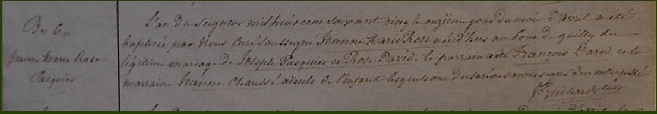 B. 60
Jeanne Marie Rose
Pasquier
L'an du Seigneur mil huit cent soixante cinq le onzième jour du mois d'avril a été
baptisée par Nous Curé soussigné Jeanne Marie Rose née d'hier au de quilly du
légitime mariage de Joseph Pasquier et Rose David. Le parrain a été François David et la
marraine Jeanne Chaussé aïeuls de l'enfant lesquels ont déclaré ne savoir signer de ce interpellé